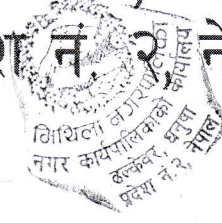 श नं. २, ने
मिथिला नगरपालिका
नगर कार्यपालिकाको कार्यालय
ढल्केवर, धनुषा
प्रदेश नं. २, नेपाल